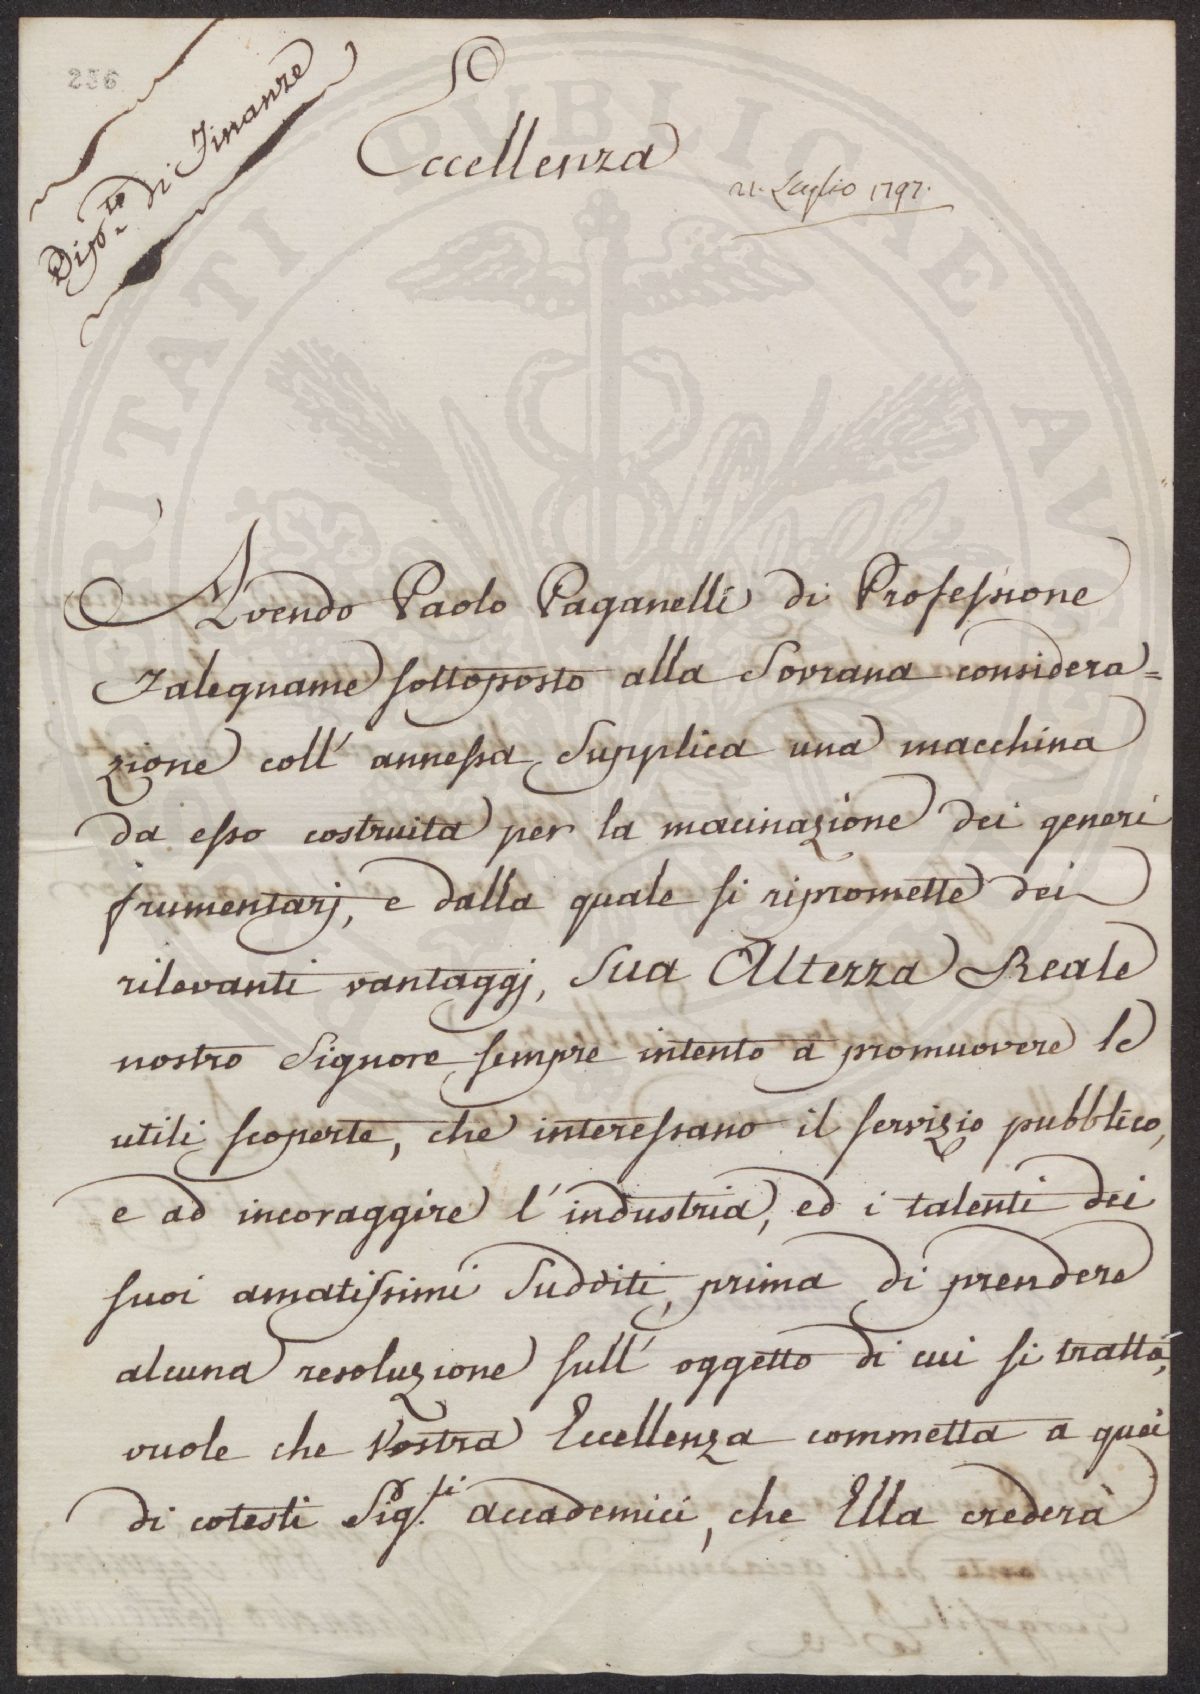 236
Dip.to di Finanze
Eccellenza
21. Luglio 1797.
Avendo Paolo Paganelli di Professione
Falegname sottoposto alla Sovrana considera=
zione coll' annessa Supplica una macchina
da esso costruita per la macinazione dei generi
frumentarj, e dalla quale si ripromette dei
rilevanti vantaggj, Sua Altezza Reale
nostro Signore sempre intento a promuovere le
utili scoperte, che interessano il servizio pubblico,
e ad incoraggire l'industria, ed i talenti dei
suoi amatissimi Sudditi, prima di prendere
alcuna resoluzione sull' oggetto di cui si tratta,
vuole che Vostra Eccellenza commetta a quei
di cotesti Sig.ri accademici, che Ella crederà